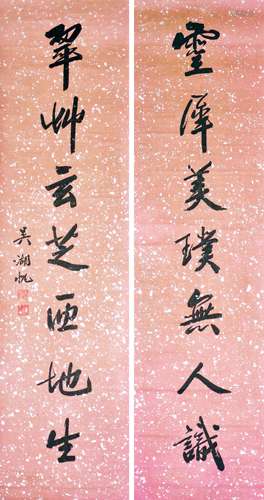 靈厓美璞無人識
翠艸云芝匝地生
吳湖帆